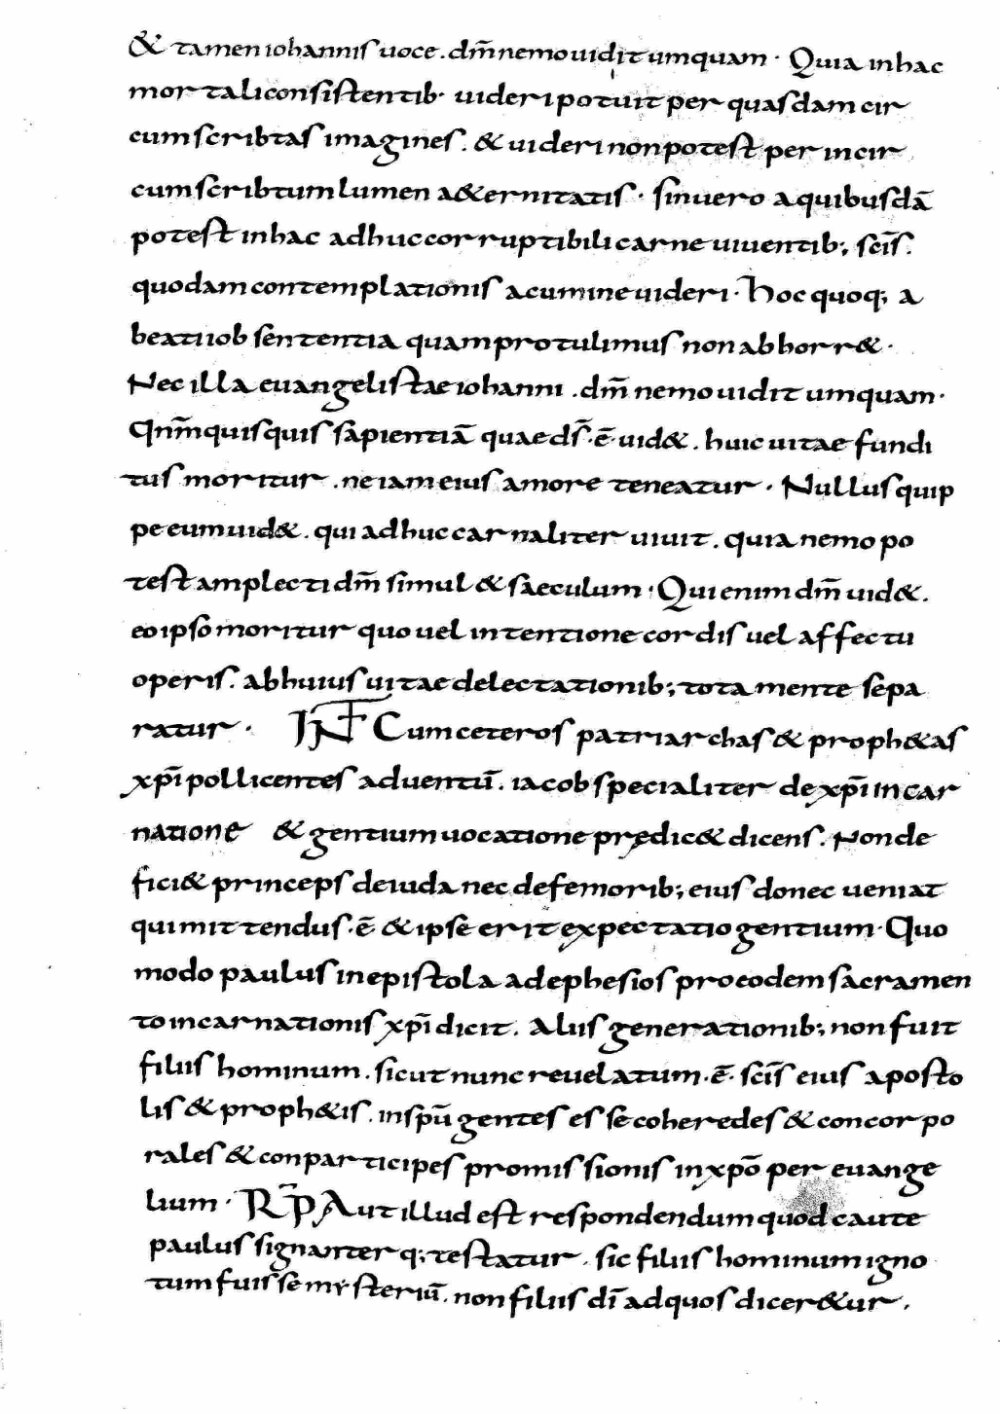 & tamen iohannis uoce . dm̄ nemo uidit umquam · Quia in hac
mortali consistentib· uideri potuit per quasdam cir
cumscribtas imagines . & uideri non potest per incir
cumscribtum lumen a&ernitatis · sin uero a quibusdā
potest in hac adhuc corruptibili carne uiuentib; sc̄is .
quodam contemplationis acumine uideri · hoc quoq; a
beati iob sententia quam protulimus non abhorr& ·
Nec illa euangelistae iohanni . dm̄ nemo uidit umquam ·
Qnm̄ quisquis sapientiā quae ds̄ · ē · uid& . huic uitae fundi
tus moritur . ne iam eius amore teneatur · Nullus quip
pe eum uid& . qui adhuc carnaliter uiuit . quia nemo po
test amplecti dm̄ simul & saeculum · Qui enim dm̄ uid& .
eo ipso moritur quo uel intentione cordis uel affectu
operis . ab huius uitae delectationib; tota mente sepa
ratur · INT Cum ceteros patriarchas & proph&as
xp̄i pollicentes aduentū . iacob specialiter de xp̄i incar
natione & gentium uocatione prędic& dicens . Non de
fici& princeps de iuda nec de femorib; eius donec ueniat
qui mittendus · ē · & ipse erit expectatio gentium · Quo
modo paulus in epistola ad ephesios pro eodem sacramen
to incarnationis xp̄i dicit . Aliis generationib; non fuit
filiis hominum . sicut nunc reuelatum · ē · sc̄is eius aposto
lis & proph&is . in spū gentes esse coheredes & concorpo
rales & conparticipes promissionis in xp̄o per euange
lium · RP̄ Aut illud est respondendum quod caute
paulus signanterq; testatur . sic filiis hominum igno
tum fuisse mysteriū . non filiis dī ad quos dicer&ur .